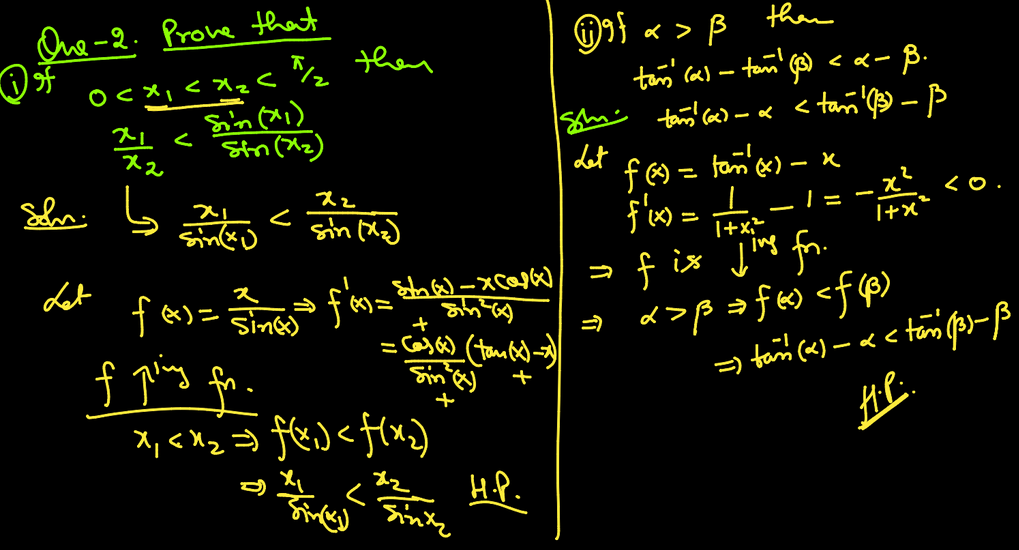 Que-2. Prove that
(i) If 0 < x₁ < x₂ < π/2 then
x₁/x₂ < sin(x₁)/sin(x₂)
Soln. ↳ x₁/sin(x₁) < x₂/sin(x₂)
Let f(x) = x/sin(x) ⇒ f'(x) = (sin(x) – x cos(x))/sin²(x)
= cos(x)/sin²(x) (tan(x) – x)
+ + +
f ↑ing fn.
x₁ < x₂ ⇒ f(x₁) < f(x₂)
⇒ x₁/sin(x₁) < x₂/sin x₂ H.P.
(ii) If α > β then
tan⁻¹(α) – tan⁻¹(β) < α – β.
Soln. tan⁻¹(α) – α < tan⁻¹(β) – β
Let f(x) = tan⁻¹(x) – x
f'(x) = 1/(1+x²) – 1 = –x²/(1+x²) < 0.
⇒ f is ↓ing fn.
⇒ α > β ⇒ f(α) < f(β)
⇒ tan⁻¹(α) – α < tan⁻¹(β) – β
H.P.